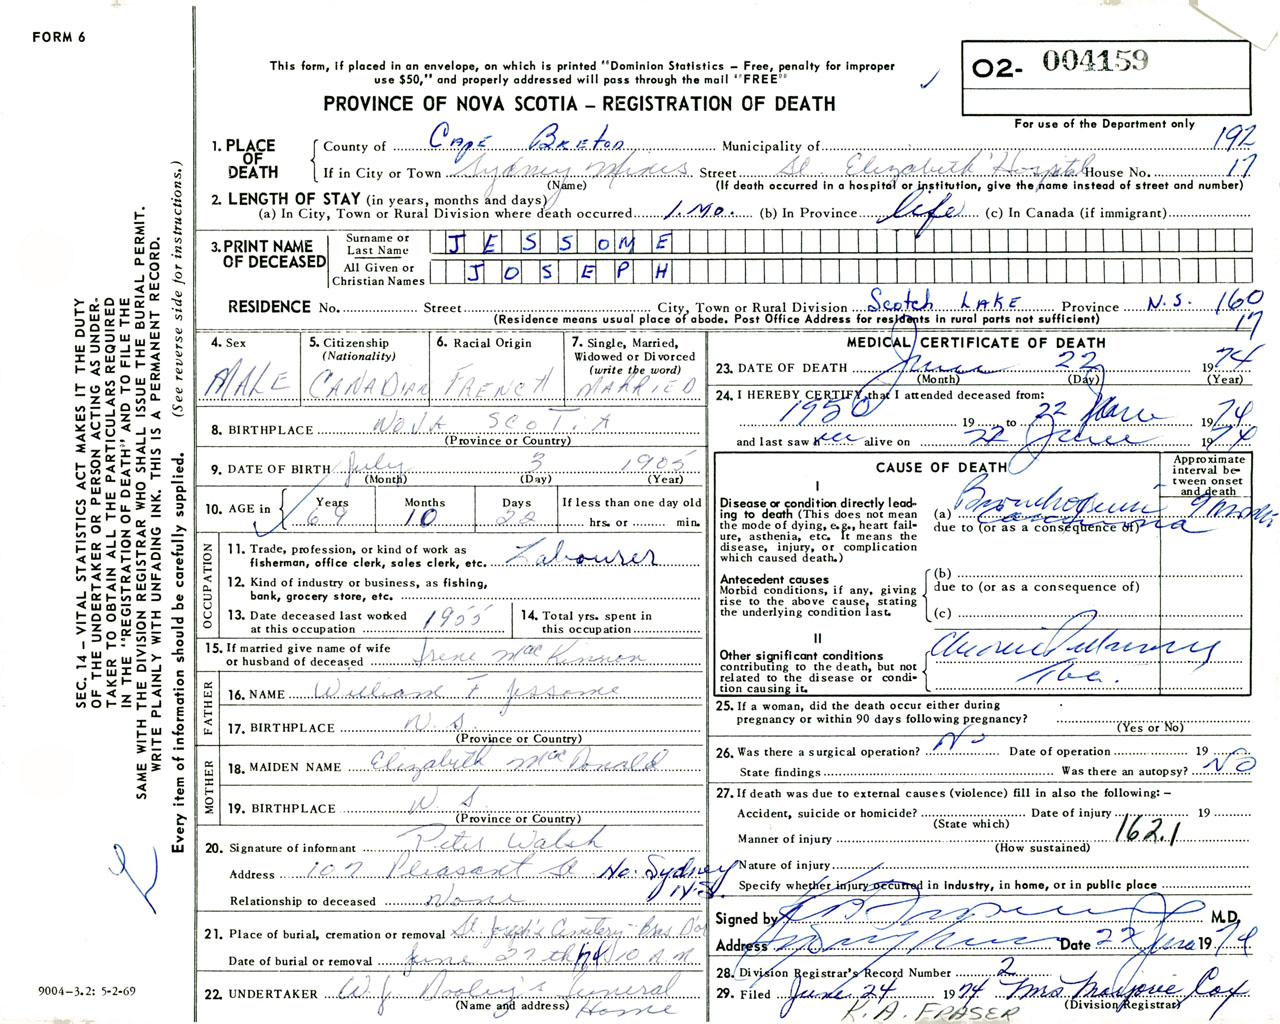 FORM 6
This form, if placed in an envelope, on which is printed "Dominion Statistics – Free, penalty for improper
use $50," and properly addressed will pass through the mail "FREE"
PROVINCE OF NOVA SCOTIA – REGISTRATION OF DEATH
O2- 004159
For use of the Department only
1. PLACE OF DEATH
County of Cape Breton Municipality of 192
If in City or Town Sydney Mines Street St. Elizabeth Hospital House No. 17
(Name) (If death occurred in a hospital or institution, give the name instead of street and number)
2. LENGTH OF STAY (in years, months and days)
(a) In City, Town or Rural Division where death occurred 1 Mo. (b) In Province life (c) In Canada (if immigrant)
3. PRINT NAME OF DECEASED
Surname or Last Name JESSOME
All Given or Christian Names JOSEPH
RESIDENCE No. Street City, Town or Rural Division Scotch LAKE Province N.S. 160
(Residence means usual place of abode. Post Office Address for residents in rural parts not sufficient) 17
4. Sex MALE
5. Citizenship (Nationality) CANADIAN
6. Racial Origin FRENCH
7. Single, Married, Widowed or Divorced (write the word) MARRIED
8. BIRTHPLACE NOVA SCOTIA
(Province or Country)
9. DATE OF BIRTH July 3 1905
(Month) (Day) (Year)
10. AGE in Years Months Days If less than one day old
10 22 hrs. or min.
OCCUPATION
11. Trade, profession, or kind of work as
fisherman, office clerk, sales clerk, etc. Labourer
12. Kind of industry or business, as fishing,
bank, grocery store, etc.
13. Date deceased last worked
at this occupation 1955
14. Total yrs. spent in
this occupation
15. If married give name of wife
or husband of deceased Irene MacKinnon
FATHER
16. NAME William F Jessome
17. BIRTHPLACE N.S.
(Province or Country)
MOTHER
18. MAIDEN NAME Elizabeth MacDonald
19. BIRTHPLACE N.S.
(Province or Country)
20. Signature of informant Peter Walsh
Address 107 Pleasant St No. Sydney N.S.
Relationship to deceased None
21. Place of burial, cremation or removal St Joseph's Cemetery Bras D'or
Date of burial or removal June 27th 74 10 A.M.
22. UNDERTAKER W J Dooley's Funeral Home
(Name and address)
MEDICAL CERTIFICATE OF DEATH
23. DATE OF DEATH June 22 1974
(Month) (Day) (Year)
24. I HEREBY CERTIFY that I attended deceased from:
1950 19 to 22 June 1974
and last saw him alive on 22 June 1974
CAUSE OF DEATH
Approximate interval between onset and death
I
Disease or condition directly leading to death (This does not mean the mode of dying, e.g., heart failure, asthenia, etc. It means the disease, injury, or complication which caused death.)
(a) Bronchogenic carcinoma 9 months
due to (or as a consequence of)
Antecedent causes
Morbid conditions, if any, giving rise to the above cause, stating the underlying condition last.
(b)
due to (or as a consequence of)
(c)
II
Other significant conditions
contributing to the death, but not related to the disease or condition causing it.
Chronic Pulmonary
Tbc.
25. If a woman, did the death occur either during
pregnancy or within 90 days following pregnancy?
(Yes or No)
26. Was there a surgical operation? No Date of operation 19
State findings Was there an autopsy? NO
27. If death was due to external causes (violence) fill in also the following: –
Accident, suicide or homicide? Date of injury 19
(State which)
Manner of injury 162.1
(How sustained)
Nature of injury
Specify whether injury occurred in Industry, in home, or in public place
Signed by M.D.
Address Date 22 June 1974
28. Division Registrar's Record Number 2
29. Filed June 24 1974 Mrs Marjorie Cox
(Division Registrar)
K.A. FRASER
SEC. 14 – VITAL STATISTICS ACT MAKES IT THE DUTY
OF THE UNDERTAKER OR PERSON ACTING AS UNDER-
TAKER TO OBTAIN ALL THE PARTICULARS REQUIRED
IN THE "REGISTRATION OF DEATH" AND TO FILE THE
SAME WITH THE DIVISION REGISTRAR WHO SHALL ISSUE THE BURIAL PERMIT.
WRITE PLAINLY WITH UNFADING INK. THIS IS A PERMANENT RECORD.
Every item of information should be carefully supplied. (See reverse side for instructions.)
9004–3.2: 5-2-69